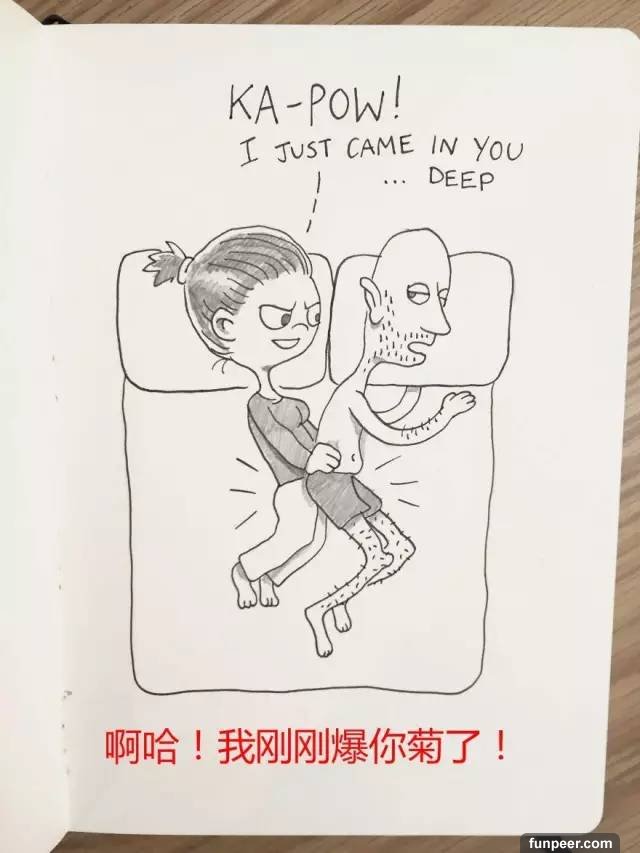 KA-POW!
I JUST CAME IN YOU
... DEEP
啊哈！我刚刚爆你菊了！
funpeer.com